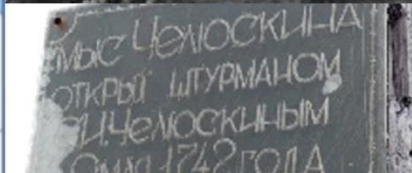 МЫС ЧЕЛЮСКИНА
ОТКРЫТ ШТУРМАНОМ
С.И.ЧЕЛЮСКИНЫМ
9 мая 1742 ГОДА